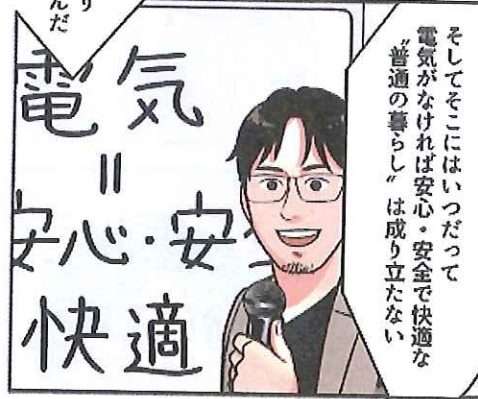 そしてそこにはいつだって
電気がなければ安心・安全で快適な
〝普通の暮らし〟は成り立たない
り
んだ
電気
=
安心・安全
快適